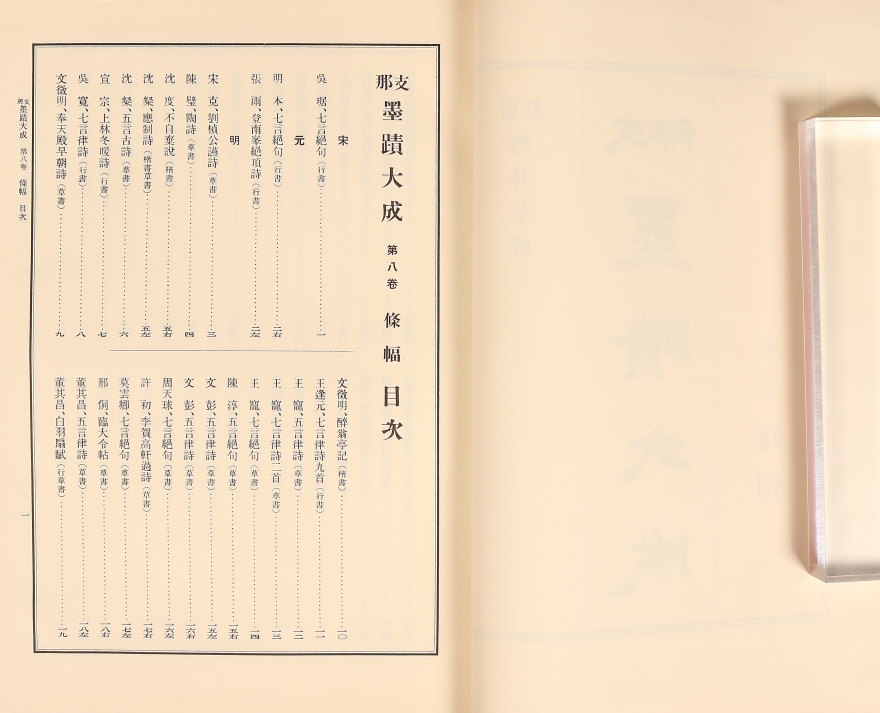 支那墨蹟大成 第八卷 條幅 目次
宋
吳 琚、七言絕句(行書)……一
元
明 本、七言絕句(行書)……二右
張 雨、登南峯絕頂詩(行書)……二左
明
宋 克、劉楨公讌詩(草書)……三
陳 璧、陶詩(草書)……四
沈 度、不自棄說(楷書)……五右
沈 粲、應制詩(楷書草書)……五左
沈 粲、五言古詩(草書)……六
宣 宗、上林冬暖詩(行書)……七
吳 寬、七言律詩(行書)……八
文徵明、奉天殿早朝詩(草書)……九
文徵明、醉翁亭記(楷書)……一〇
王逢元、七言律詩九首(行書)……一一
王 寵、五言律詩(草書)……一二
王 寵、七言律詩二首(草書)……一三
王 寵、七言絕句(草書)……一四
陳 淳、五言絕句(草書)……一五右
文 彭、五言律詩(草書)……一五左
文 彭、五言律詩(草書)……一六右
周天球、七言絕句(行書)……一六左
許 初、李賀高軒過詩(草書)……一七右
莫雲卿、七言絕句(草書)……一七左
邢 侗、臨大令帖(草書)……一八右
董其昌、五言律詩(草書)……一八左
董其昌、白羽扇賦(行草書)……一九
支那墨蹟大成 第八卷 條幅 目次
一